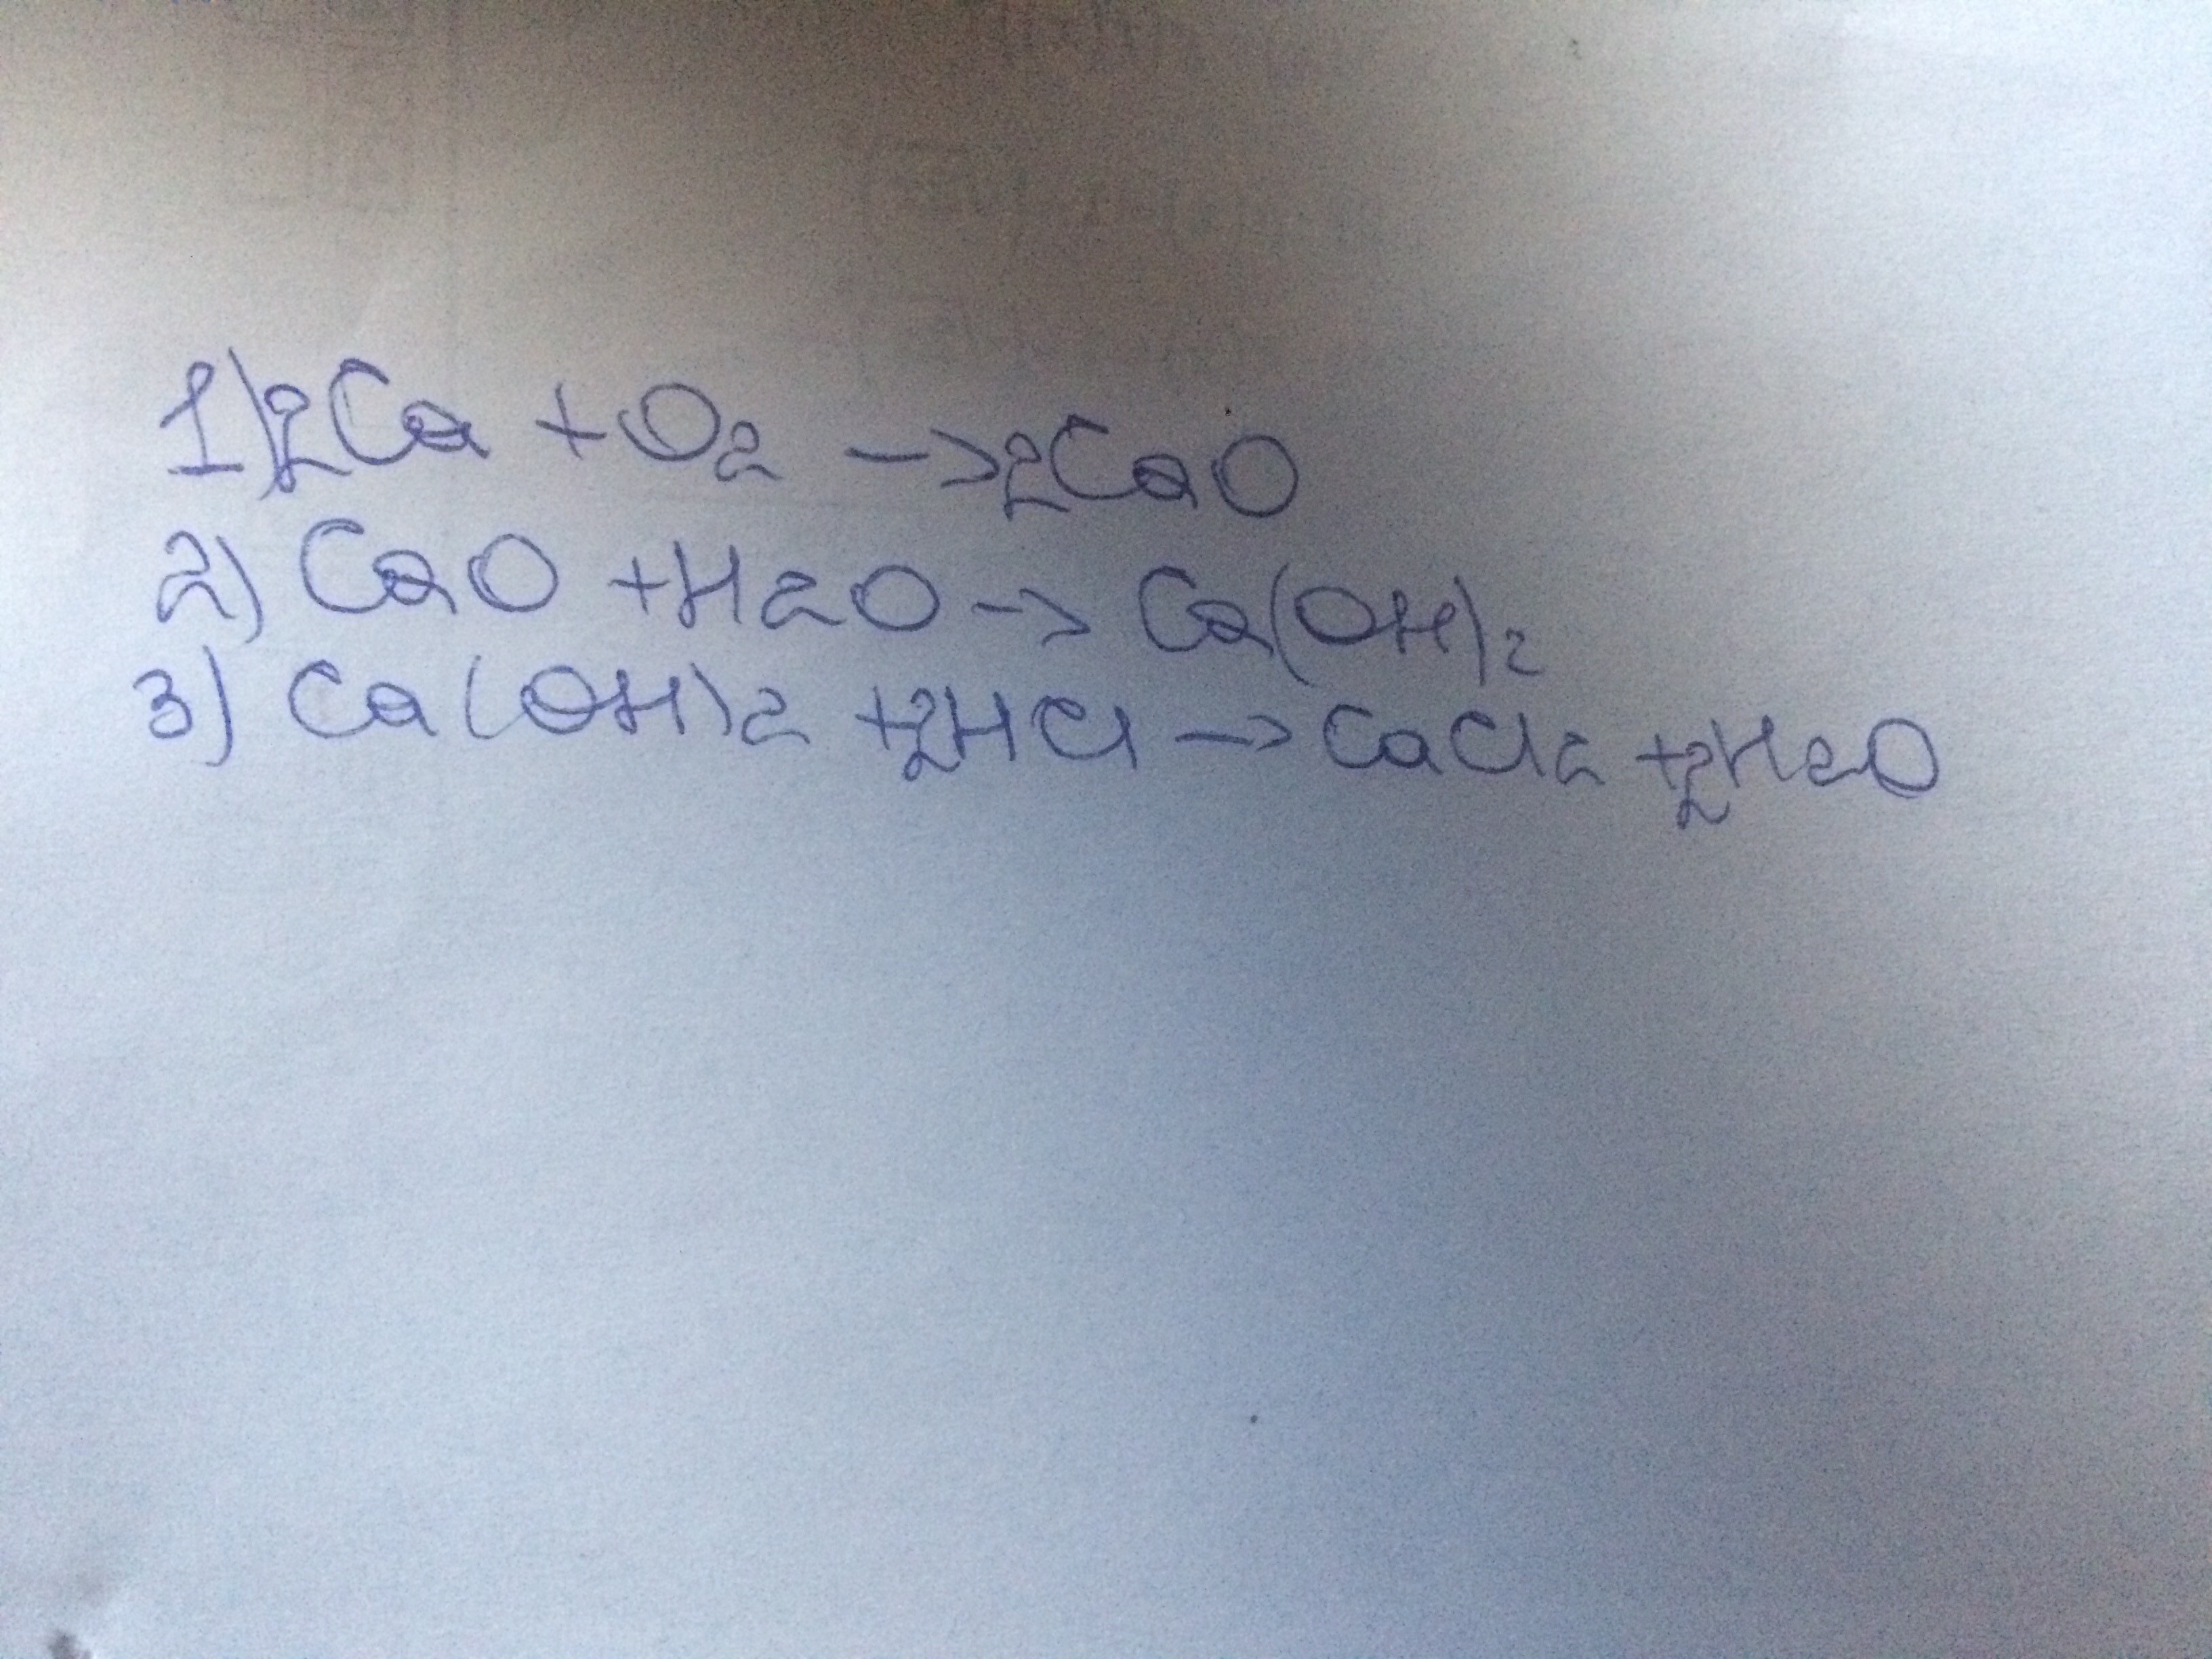 1) 2Ca + O₂ → 2CaO
2) CaO + H₂O → Ca(OH)₂
3) Ca(OH)₂ + 2HCl → CaCl₂ + 2H₂O